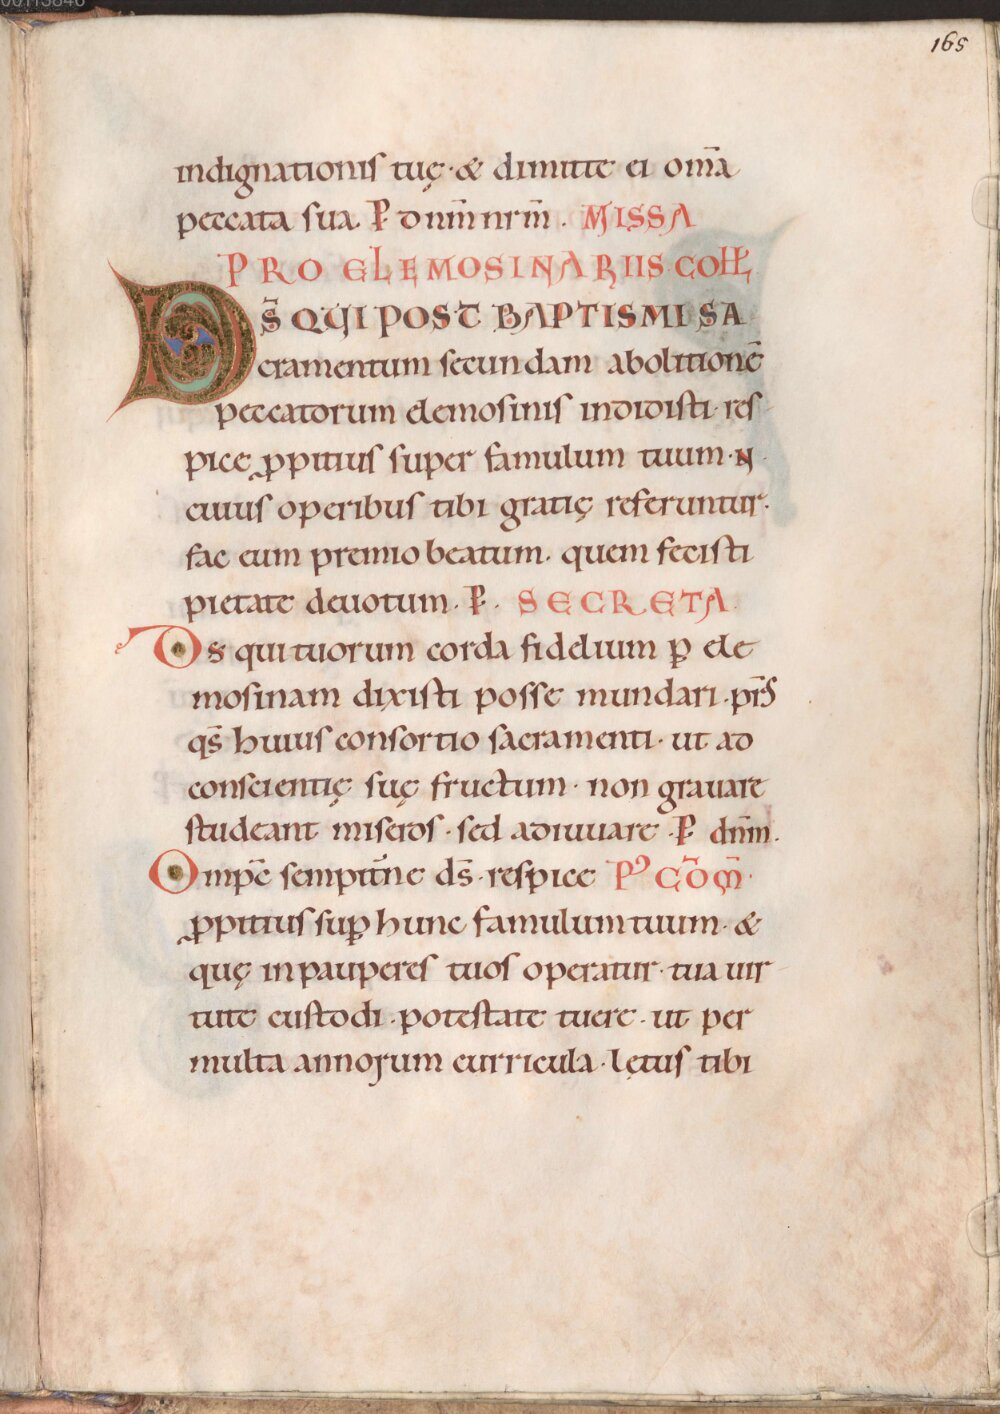 165
indignationis tuę· & dimitte ei om̄a
peccata sua. P̄ dnm̄ nrm̄. MISSA
PRO ELEMOSINARIIS·COLL̄
DS̄ QUI POST BAPTISMI SA
cramentum secundam abolitionē
peccatorum elemosinis indidisti· res
pice ꝓpitius super famulum tuum· N
cuius operibus tibi gratię referuntur·
fac eum premio beatum· quem fecisti
pietate deuotum. P̄. SECRETA
Ds qui tuorum corda fidelium ꝑ ele
mosinam dixisti posse mundari· p̄rs
qs̄ huius consortio sacramenti· ut ad
conscientię suę fructum· non grauare
studeant miseros· sed adiuuare· P̄ dnm̄.
Omp̄e sempit̄ne ds̄· respice Pꝰ CŌM̄·
ꝓpitius suꝑ hunc famulum tuum· &
quę in pauperes tuos operatur· tua uir
tute custodi· potestate tuere· ut per
multa annorum curricula· lętus tibi